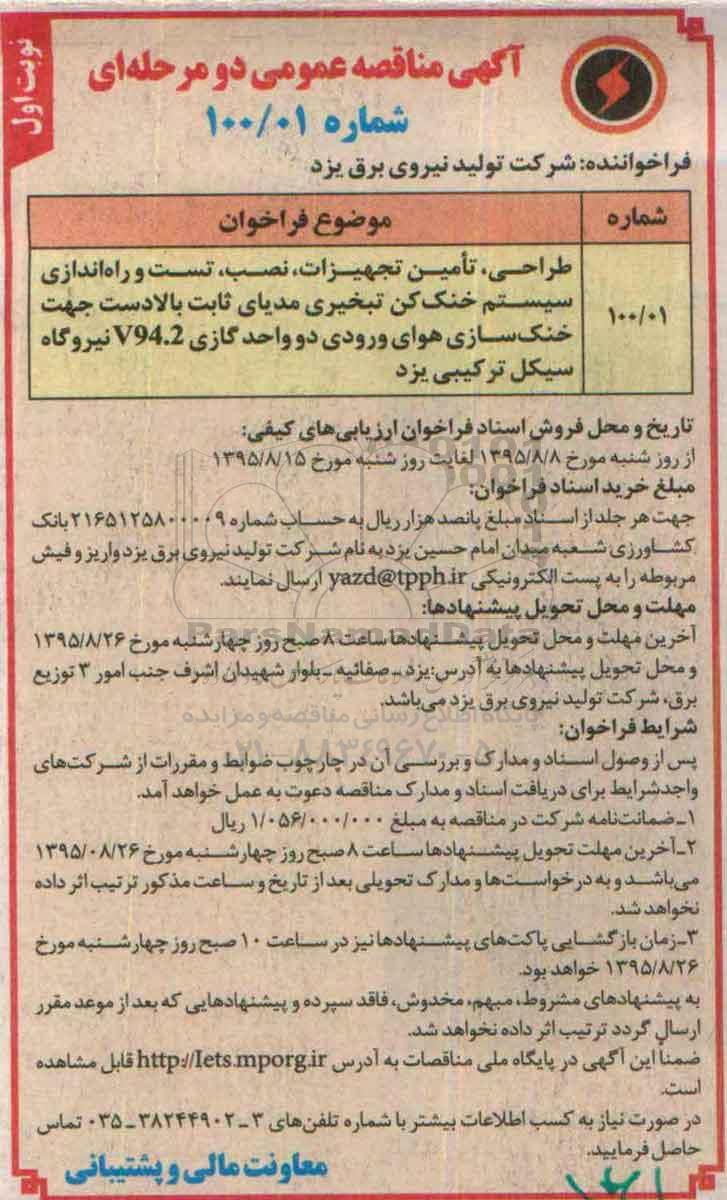 نوبت اول
آگهی مناقصه عمومی دو مرحله‌ای
شماره ۱۰۰/۰۱
فراخواننده: شرکت تولید نیروی برق یزد
شماره
موضوع فراخوان
۱۰۰/۰۱
طراحی، تأمین تجهیزات، نصب، تست و راه‌اندازی
سیستم خنک‌کن تبخیری مدیای ثابت بالادست جهت
خنک‌سازی هوای ورودی دو واحد گازی V94.2 نیروگاه
سیکل ترکیبی یزد
تاریخ و محل فروش اسناد فراخوان ارزیابی‌های کیفی:
از روز شنبه مورخ ۱۳۹۵/۸/۸ لغایت روز شنبه مورخ ۱۳۹۵/۸/۱۵
مبلغ خرید اسناد فراخوان:
جهت هر جلد از اسناد مبلغ پانصد هزار ریال به حساب شماره ۲۱۶۵۱۲۵۸۰۰۰۰۹ بانک
کشاورزی شعبه میدان امام حسین یزد به نام شرکت تولید نیروی برق یزد واریز و فیش
مربوطه را به پست الکترونیکی yazd@tpph.ir ارسال نمایند.
مهلت و محل تحویل پیشنهادها:
آخرین مهلت و محل تحویل پیشنهادها ساعت ۸ صبح روز چهارشنبه مورخ ۱۳۹۵/۸/۲۶
و محل تحویل پیشنهادها به آدرس: یزد ـ صفائیه ـ بلوار شهیدان اشرف جنب امور ۳ توزیع
برق، شرکت تولید نیروی برق یزد می‌باشد.
ParsNamadData
پایگاه اطلاع رسانی مناقصه و مزایده
۰۲۱-۸۸۳۴۹۶۷۰-۵
شرایط فراخوان:
پس از وصول اسناد و مدارک و بررسی آن در چارچوب ضوابط و مقررات از شرکت‌های
واجدشرایط برای دریافت اسناد و مدارک مناقصه دعوت به عمل خواهد آمد.
۱ـ ضمانت‌نامه شرکت در مناقصه به مبلغ ۱/۰۵۶/۰۰۰/۰۰۰ ریال
۲ـ آخرین مهلت تحویل پیشنهادها ساعت ۸ صبح روز چهارشنبه مورخ ۱۳۹۵/۰۸/۲۶
می‌باشد و به درخواست‌ها و مدارک تحویلی بعد از تاریخ و ساعت مذکور ترتیب اثر داده
نخواهد شد.
۳ـ زمان بازگشایی پاکت‌های پیشنهادها نیز در ساعت ۱۰ صبح روز چهارشنبه مورخ
۱۳۹۵/۸/۲۶ خواهد بود.
به پیشنهادهای مشروط، مبهم، مخدوش، فاقد سپرده و پیشنهادهایی که بعد از موعد مقرر
ارسال گردد ترتیب اثر داده نخواهد شد.
ضمنا این آگهی در پایگاه ملی مناقصات به آدرس http://Iets.mporg.ir قابل مشاهده
است.
در صورت نیاز به کسب اطلاعات بیشتر با شماره تلفن‌های ۳ ـ ۳۸۲۴۴۹۰۲ ـ ۰۳۵ تماس
حاصل فرمایید.
معاونت مالی و پشتیبانی